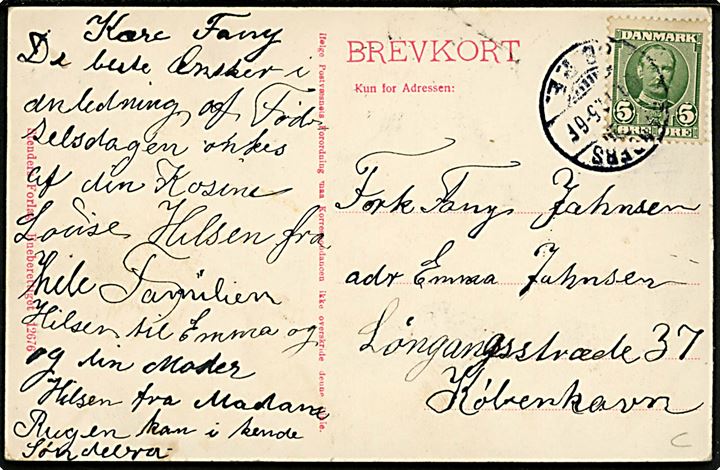 Kære Fany
De beste Ønsker i
anledning af Fød
selsdagen önkes
af din Kosine
Louise Hilsen fra
hele Familien
Hilsen til Emma og
og din Moder
Hilsen fra Madam
Rugen kan i kende
Søndebra
Ifølge Postvæsnets Forordning maa Korrespondancen ikke overskride denne Linie.
Stenders Forlag. Eneberettiget 12676
BREVKORT
Kun for Adressen:
DANMARK
5 5
ØRE ØRE
5-6F
Frøk Fany Jahnsen
adr Emma Jahnsen
Löngangsstræde 37
København
C